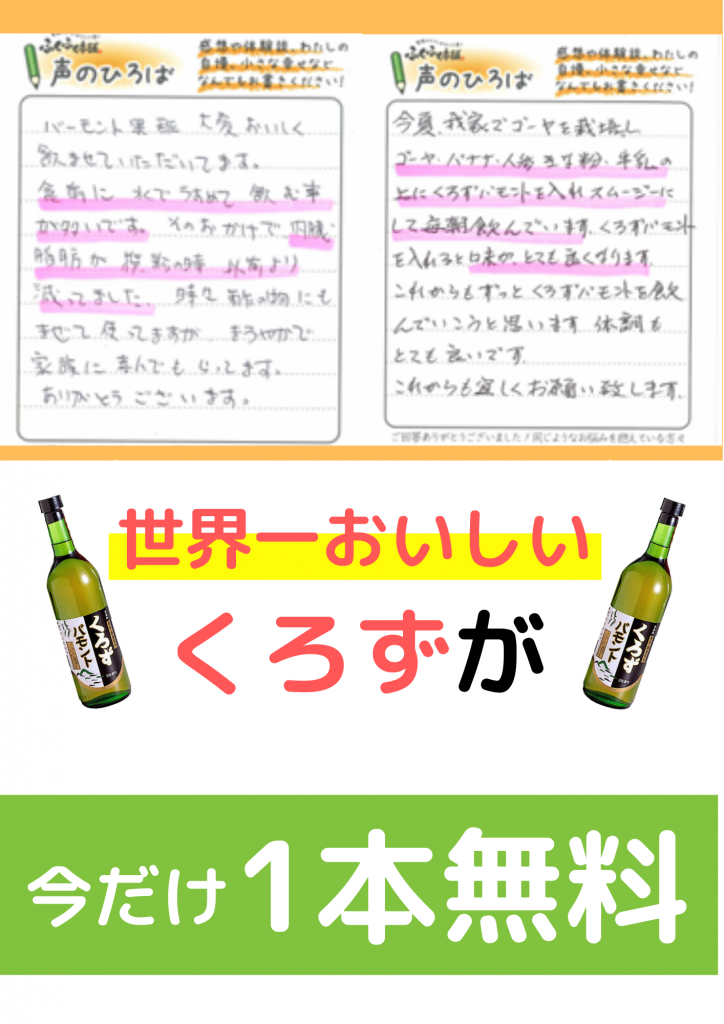 声のひろば
感想や体験談、わたしの
自慢、小さな幸せなど
なんでもお書きください!
バーモント果酢 大変おいしく
飲ませていただいてます。
食前に 水でうすめて 飲む事
が多いです。そのおかげで 内臓
脂肪が 検診の時 以前より
減ってました。時々 酢の物にも
まぜて 使ってますが まろやかで
家族に 喜んでもらってます。
ありがとうございます。
声のひろば
感想や体験談、わたしの
自慢、小さな幸せなど
なんでもお書きください!
今夏、我家でゴーヤを栽培し
ゴーヤ・バナナ・人参・きな粉・牛乳の
上にくろずバモントを入れスムージーに
して毎朝飲んでいます。くろずバモント
を入れると口味が、とても良くなります。
これからもずっとくろずバモントを飲
んでいこうと思います 体調も
とても良いです。
これからも宜しくお願い致します。
ご回答ありがとうございました!同じようなお悩みを抱えている方々
世界一おいしい
くろずが
くろず
バモント
くろず
バモント
今だけ1本無料